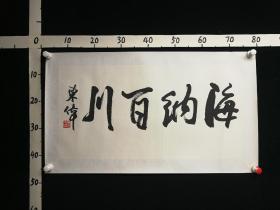 海纳百川
東偉
10 20 30 40 50 60 70 80
10
20
30
40
50